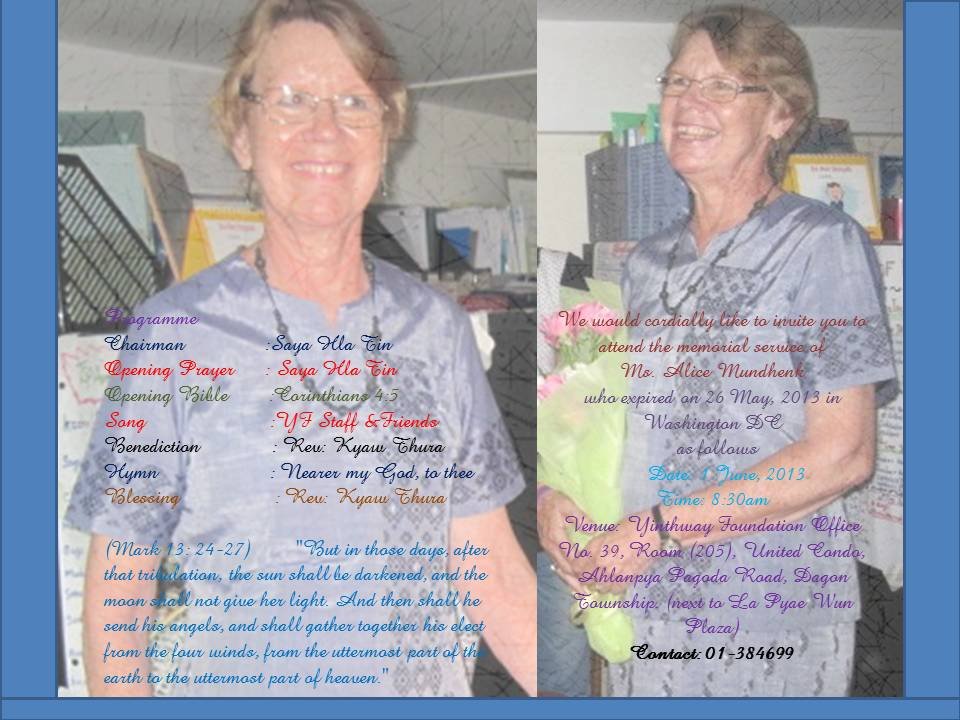 Programme
Chairman :Saya Hla Tin
Opening Prayer : Saya Hla Tin
Opening Bible :Corinthians 4:5
Song :YF Staff &Friends
Benediction : Rev: Kyaw Thura
Hymn : Nearer my God, to thee
Blessing : Rev: Kyaw Thura
(Mark 13: 24-27) "But in those days, after
that tribulation, the sun shall be darkened, and the
moon shall not give her light. And then shall he
send his angels, and shall gather together his elect
from the four winds, from the uttermost part of the
earth to the uttermost part of heaven."
We would cordially like to invite you to
attend the memorial service of
Ms. Alice Mundhenk
who expired on 26 May, 2013 in
Washington DC
as follows
Date: 1 June, 2013
Time: 8:30am
Venue: Yinthway Foundation Office
No. 39, Room (205), United Condo,
Ahlanpya Pagoda Road, Dagon
Township. (next to La Pyae Wun
Plaza)
Contact: 01-384699